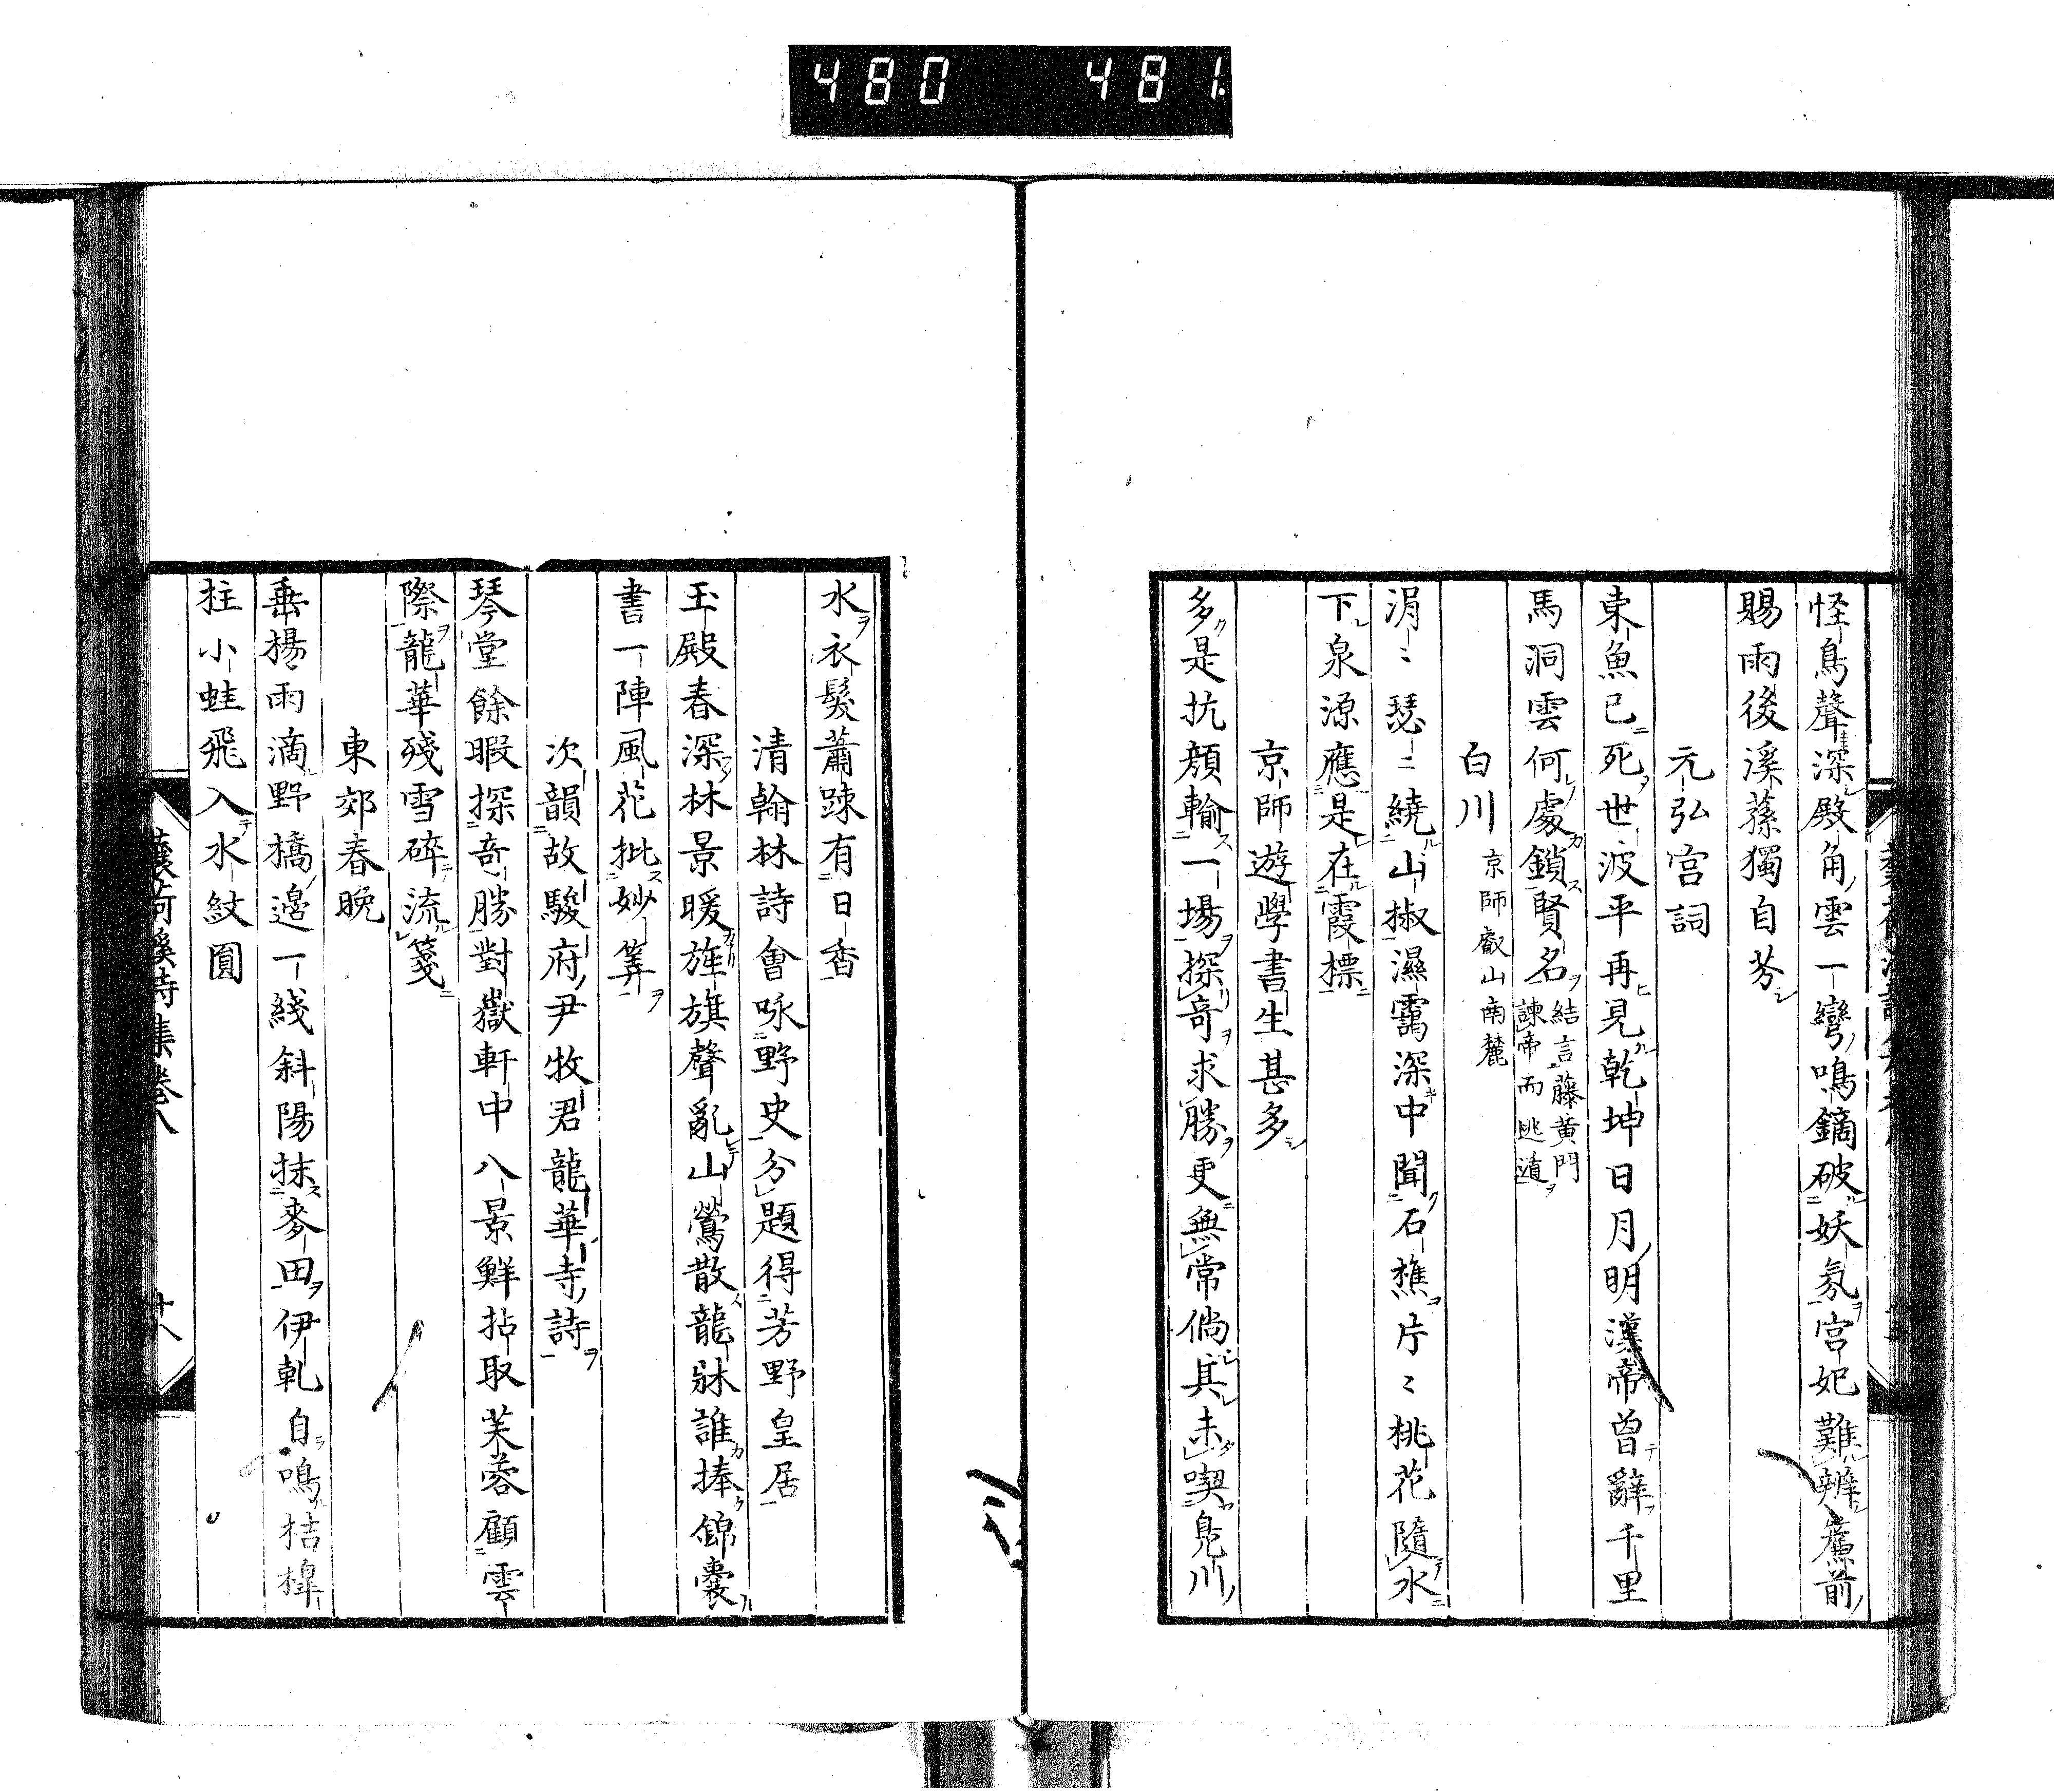 480 481
怪鳥聲深殿角雲一彎鳴鏑破妖氛宮妃難辨簷前
賜雨後溪蓀獨自芬
元弘宮詞
東魚已死世波平再見乾坤日月明漢帝曾辭千里
馬洞雲何處鎖賢名
結言藤黃門
諫帝而逃遁
白川
京師叡山南麓
涓〻瑟〻繞山椒濕靄深中聞石樵片〻桃花隨水
下泉源應是在霞標
京師遊學書生甚多
多是抗顏輸一場探奇求勝更無常倘其未喫鳧川
水衣髮蕭踈有日香
清翰林詩會咏野史分題得芳野皇居
玉殿春深林景暖旌旗聲亂山鶯散龍牀誰捧錦囊
書一陣風花批妙筭
次韻故駿府尹牧君龍華寺詩
琴堂餘暇探奇勝對嶽軒中八景鮮拈取芙蓉顧雲
際龍華殘雪碎流箋
東郊春晚
垂楊雨滴野橋邊一綫斜陽抹麥田伊軋自鳴桔槹
拄小蛙飛入水紋圓
溪詩集卷八
廿八